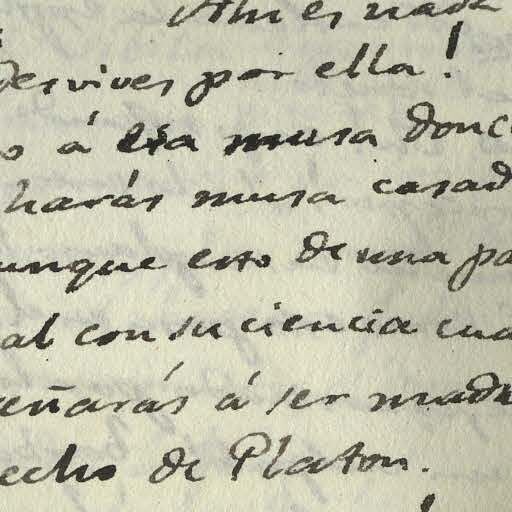 Ahi es nada
desvives por ella!
á esa musa donc
harás musa casad
unque esto de una pa
al con su ciencia cua
eñarás á ser madr
echo de Platon.